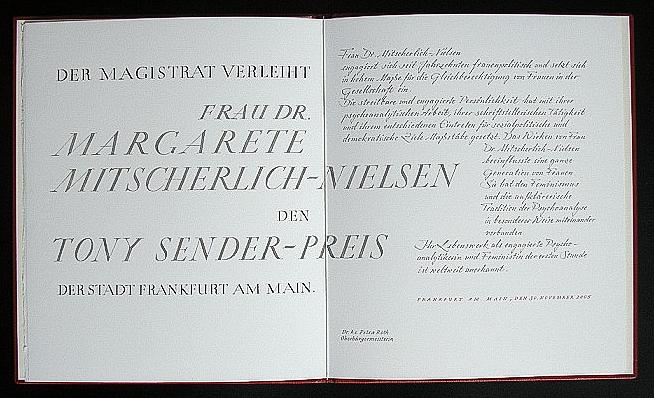 DER MAGISTRAT VERLEIHT
FRAU DR.
MARGARETE
MITSCHERLICH-NIELSEN
DEN
TONY SENDER-PREIS
DER STADT FRANKFURT AM MAIN.
Frau Dr. Mitscherlich-Nielsen
engagiert sich seit Jahrzehnten frauenpolitisch und setzt sich
in hohem Maße für die Gleichberechtigung von Frauen in der
Gesellschaft ein
Die streitbare und engagierte Persönlichkeit hat mit ihrer
psychoanalytischen Arbeit, ihrer schriftstellerischen Tätigkeit
und ihrem entschiedenen Eintreten für sozialpolitische und
demokratische Ziele Maßstäbe gesetzt. Das Wirken von Frau
Dr. Mitscherlich-Nielsen
beeinflusste eine ganze
Generation von Frauen
Sie hat den Feminismus
und die aufklärerische
Tradition der Psychoanalyse
in besonderer Weise miteinander
verbunden
Ihr Lebenswerk als engagierte Psycho-
analytikerin und Feministin der ersten Stunde
ist weltweit anerkannt.
FRANKFURT AM MAIN, DEN 30. NOVEMBER 2005
Dr. h.c. Petra Roth
Oberbürgermeisterin